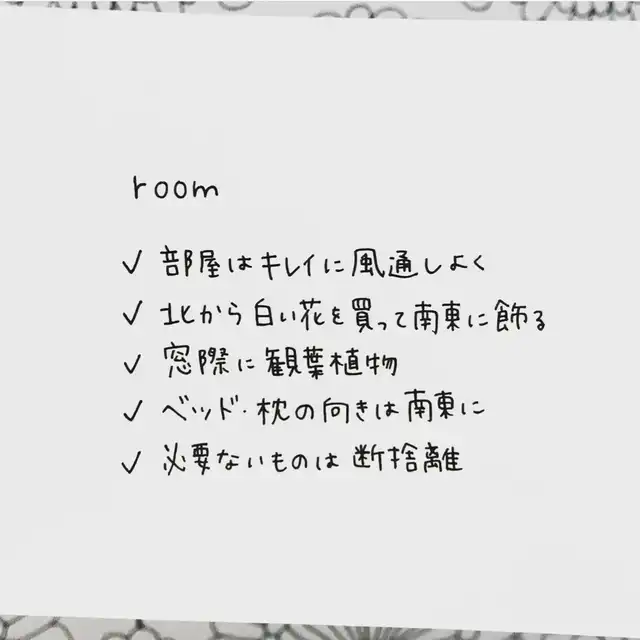 room
✓ 部屋はキレイに風通しよく
✓ 北から白い花を買って南東に飾る
✓ 窓際に観葉植物
✓ ベッド・枕の向きは南東に
✓ 必要ないものは断捨離